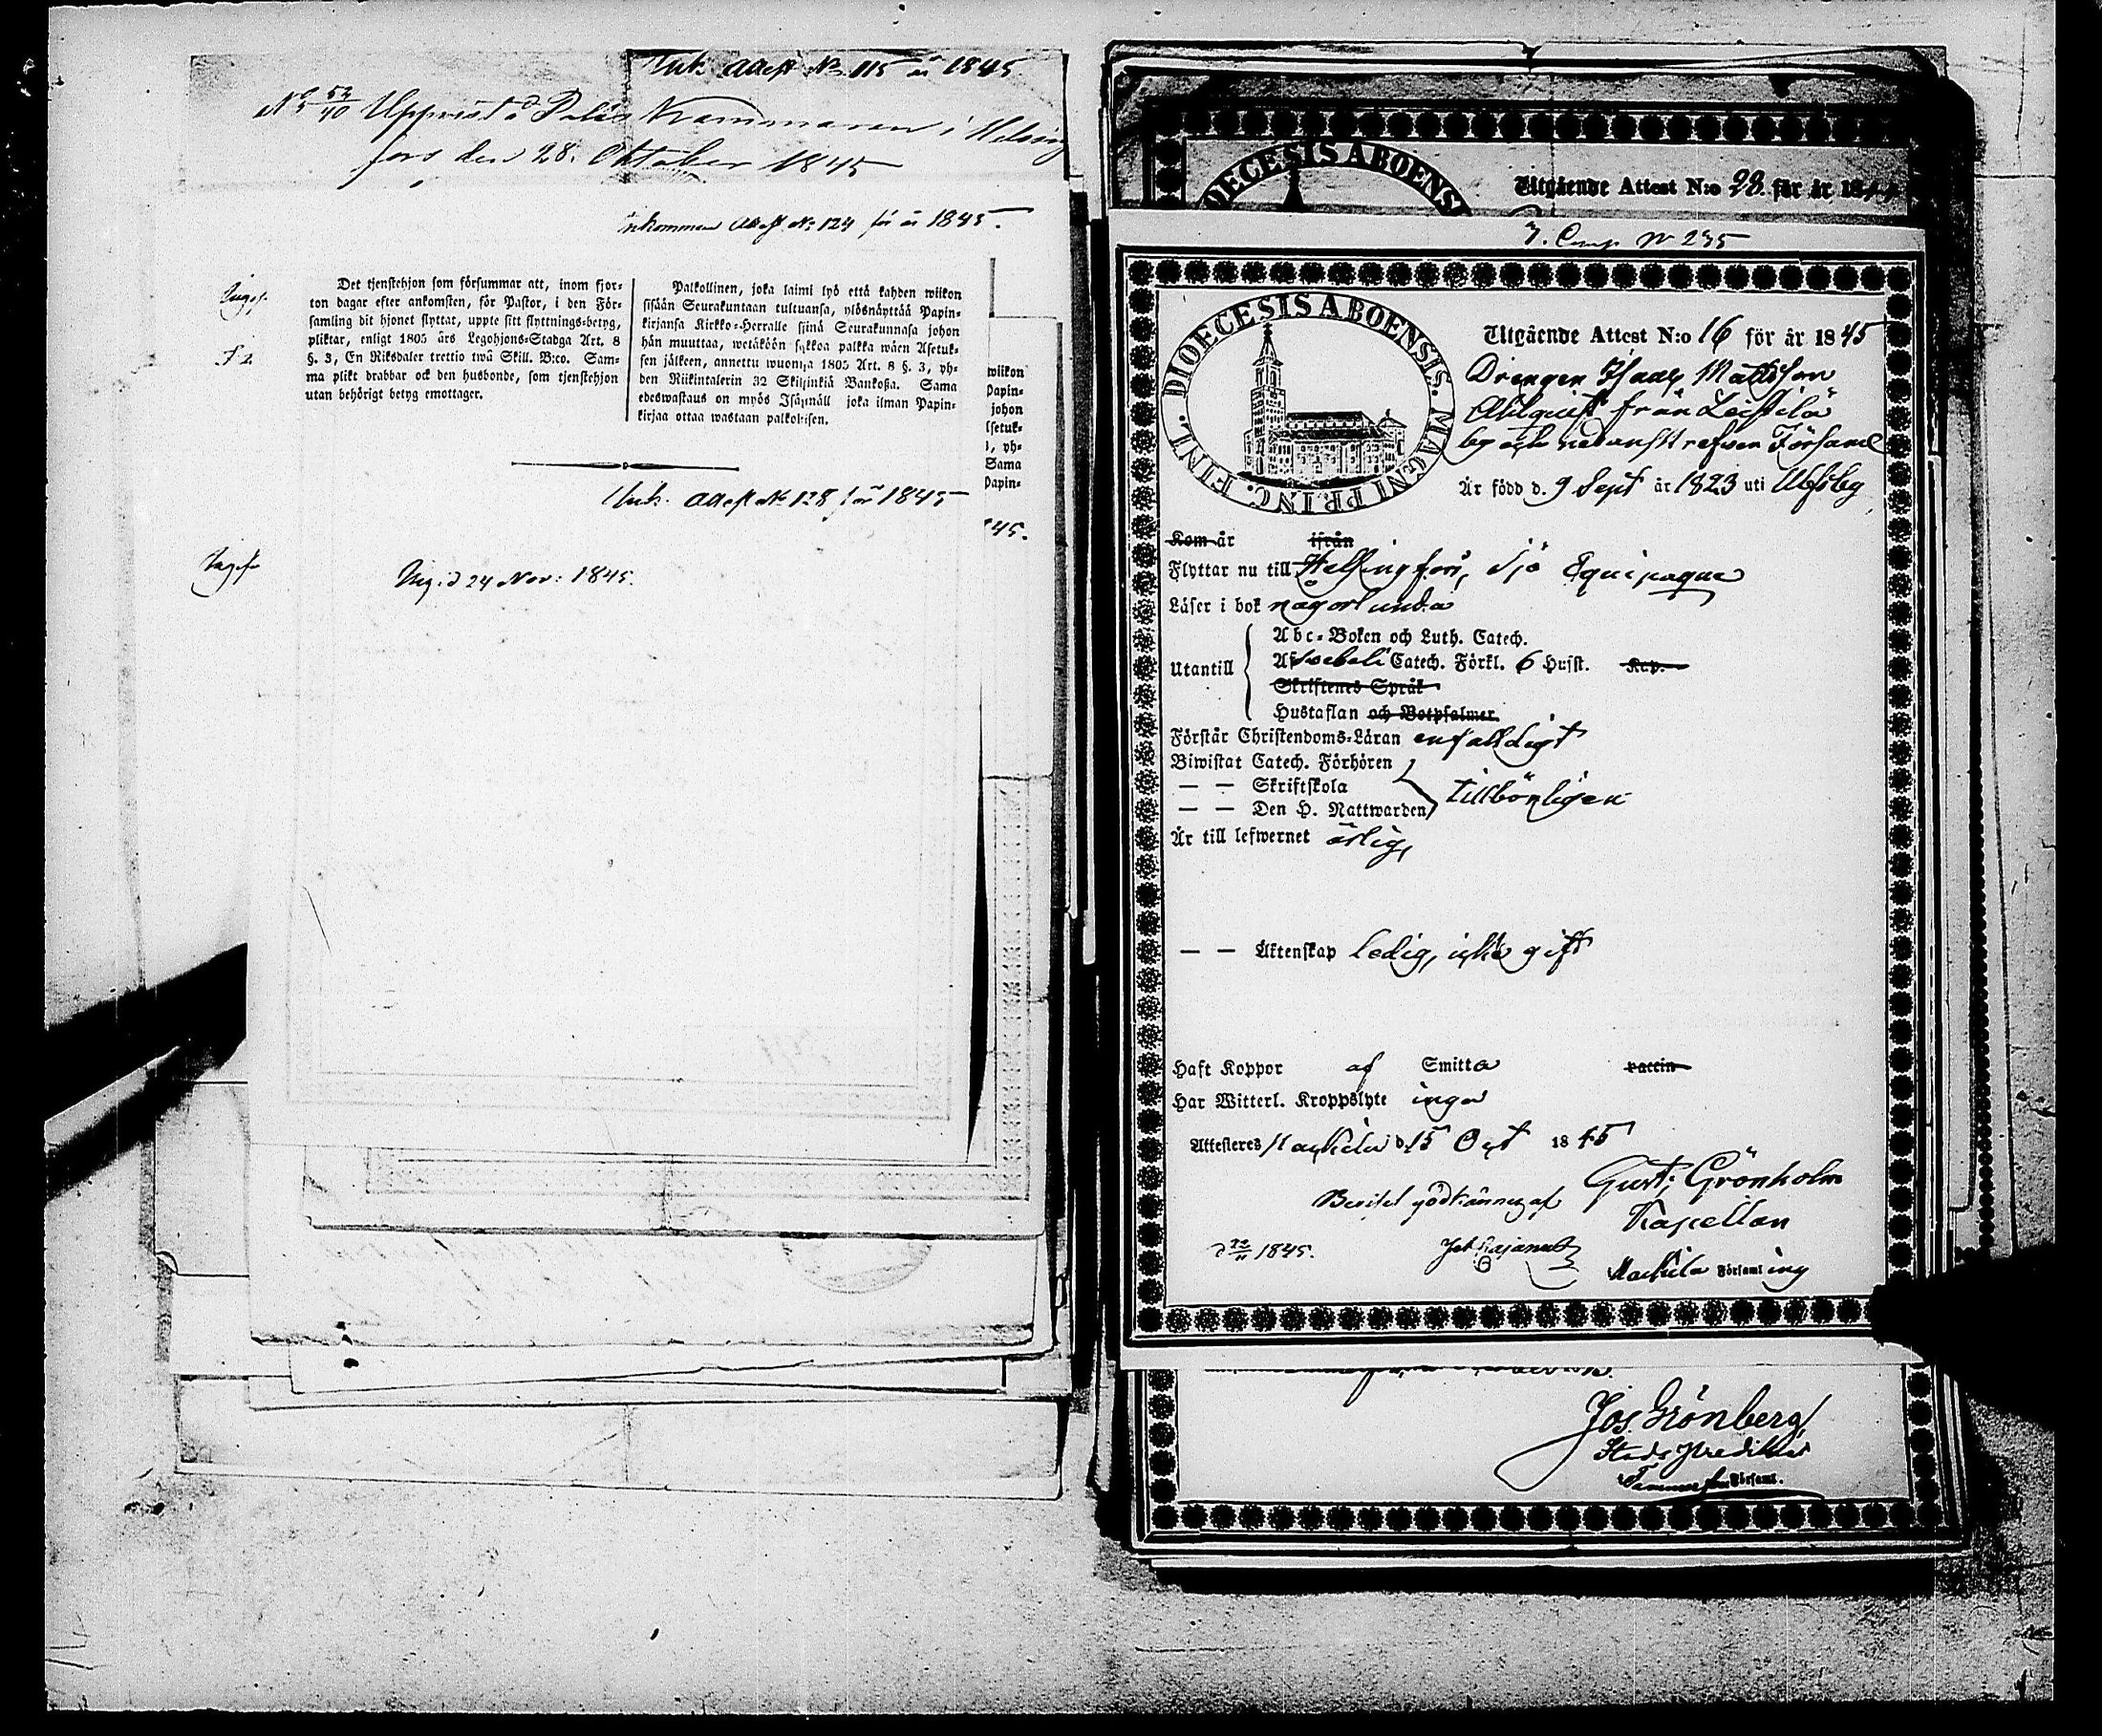 Ink. Attest No 115 år 1845
Uppvist å Polis Kammaren i Helsing
fors den 28. Oktober 1845
Inkommen Attest No 124 för år 1845.
Det tjenstehjon som försummar att, inom fjor-
ton dagar efter ankomsten, för Pastor, i den För-
samling dit hjonet flyttat, uppte sitt flyttnings-betyg,
pliktar, enligt 1805 års Legohjons-Stadga Art. 8
§. 3, En Riksdaler trettio twå Skill. B:co. Sam-
ma plikt drabbar ock den husbonde, som tjenstehjon
utan behörigt betyg emottager.
Palkollinen, joka laimi lyö että kahden wiikon
sisään Seurakuntaan tultuansa, ylösnäyttää Papin-
kirjansa Kirkko-Herralle siinä Seurakunnasa johon
hän muuttaa, wetäköön sakkoa palkka wäen Asetuk-
sen jälkeen, annettu wuonna 1805 Art. 8 §. 3, yh-
den Riikintalerin 32 Skillinkiä Bankoßa. Sama
edeswastaus on myös Isännäll joka ilman Papin-
kirjaa ottaa wastaan palkollisen.
wiikon
Papin-
johon
Asetuk-
, yh-
Sama
Papin-
45.
Ink. Attest No 128 för 1845
Ing. d 24 Nov: 1845.
DIOECESIS ABOENSIS
Utgående Attest N:o 28. för år 18
7. Comp. No 235
DIOECESIS ABOENSIS. MAGNI PRINC. FINL.
Utgående Attest N:o 16 för år 1845
Drengen Isaac Mattsson
Ahlquist från Leistilä
by och nedanskrefven Församl
Är född d. 9 Sept år 1823 uti Ulfsby
Kom år ifrån
Flyttar nu till Helsingfors, Sjö Equipaque
Läser i bok någorlunda
Abc-Boken och Luth. Catech.
Utantill Af Svebeli Catech. Förkl. 6 Husst. Kap.
Skriftenes Språk
Hustaflan och Botpsalmer.
Förstår Christendoms-Läran enfalldigt
Biwistat Catech. Förhören
— — Skriftskola tillbörligen
— — Den H. Nattwarden
Är till lefwernet ärlig,
— — Äktenskap ledig, icke gift
Haft Koppor af Smitta vaccin
Har Witterl. Kroppslyte inga
Attesteres Nackila d. 15 Oct 1845
Gust. Grönholm
Beviset godkännes af
Kapellan
1845.
Nackila Församling
Jos. Grönberg
Stads Predikant
Tammerfors Församl.